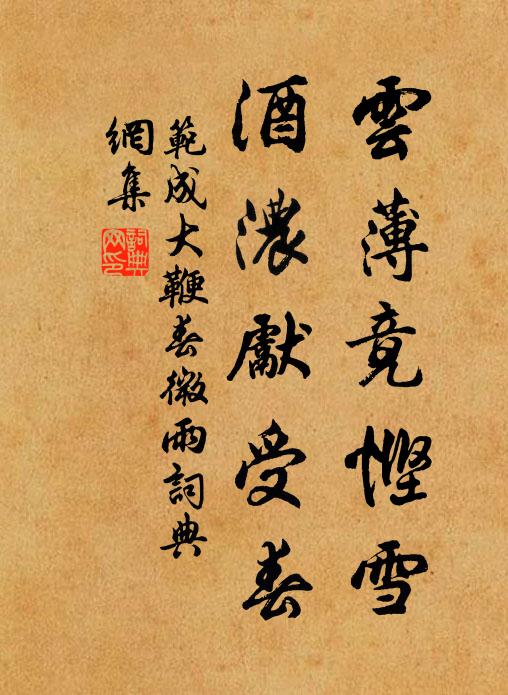 雲薄竟慳雪
酒濃獻受春
範成大鞭春微雨詞典
網集
詞典
網印